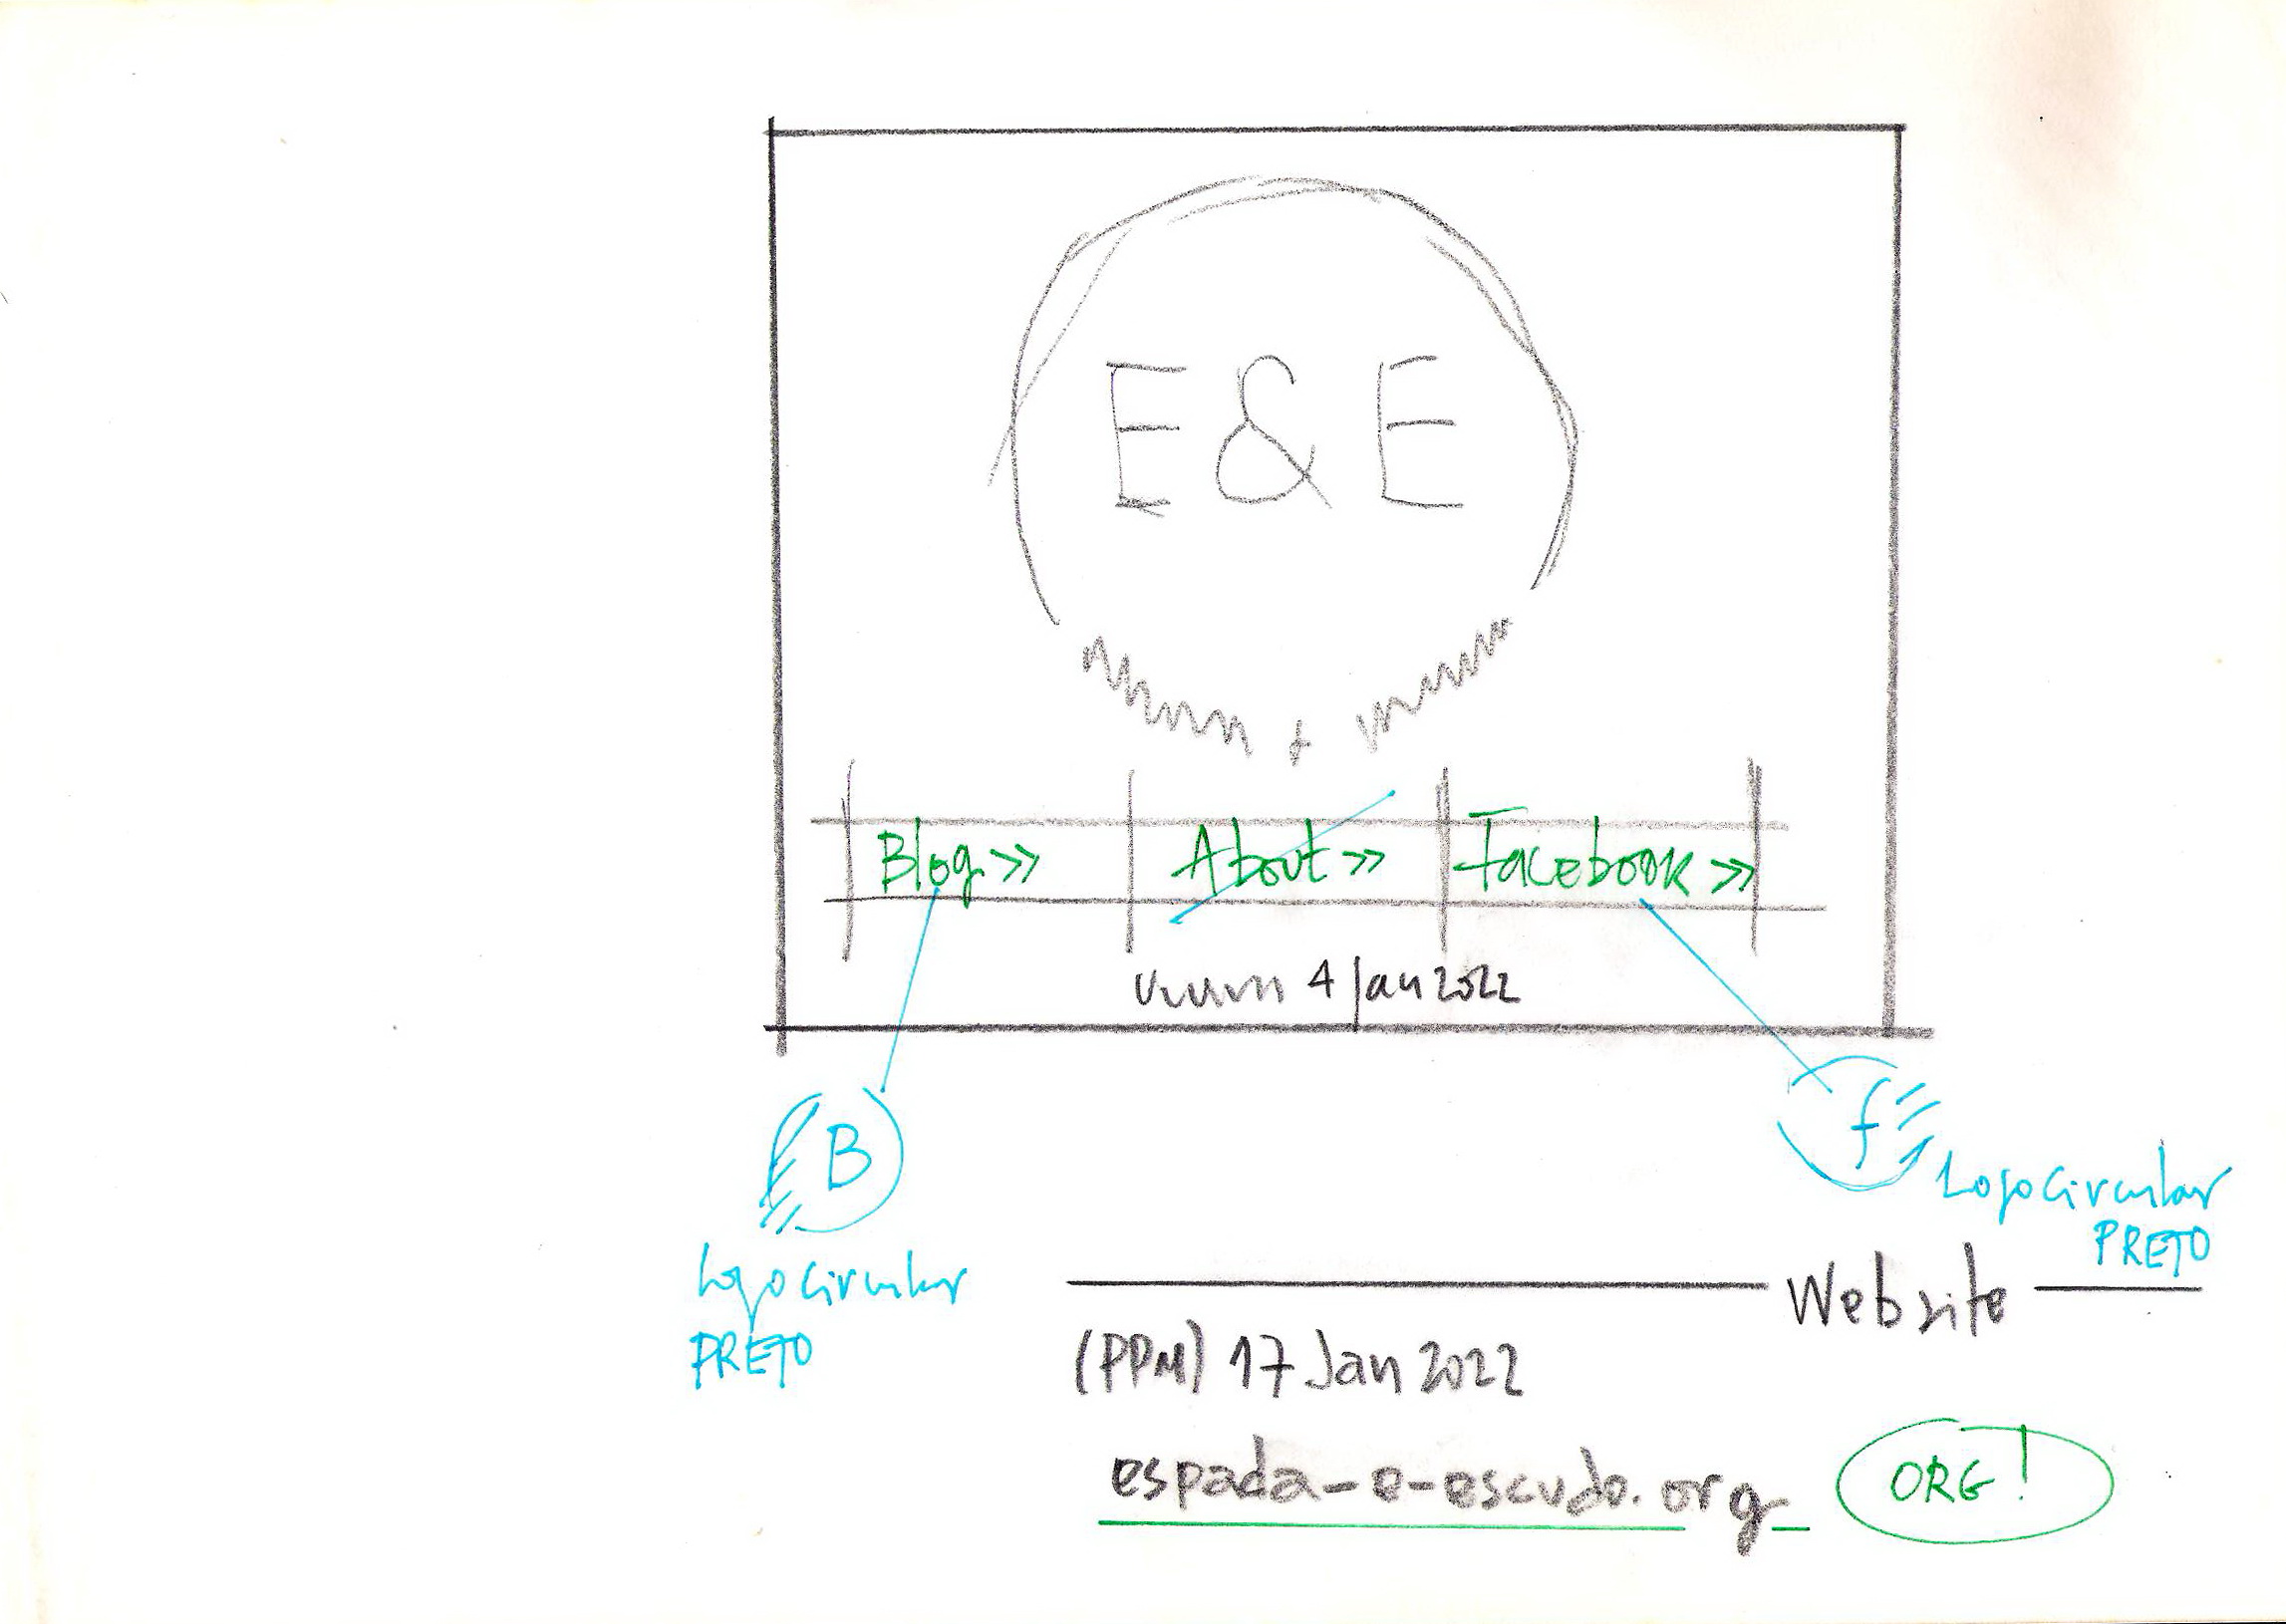 E & E
Blog >> About >> Facebook >>
4 Jan 2022
B
f
Logo Circular
PRETO
Logo Circular
PRETO
Website
(PPM) 17 Jan 2022
espada-e-escudo.org
ORG!